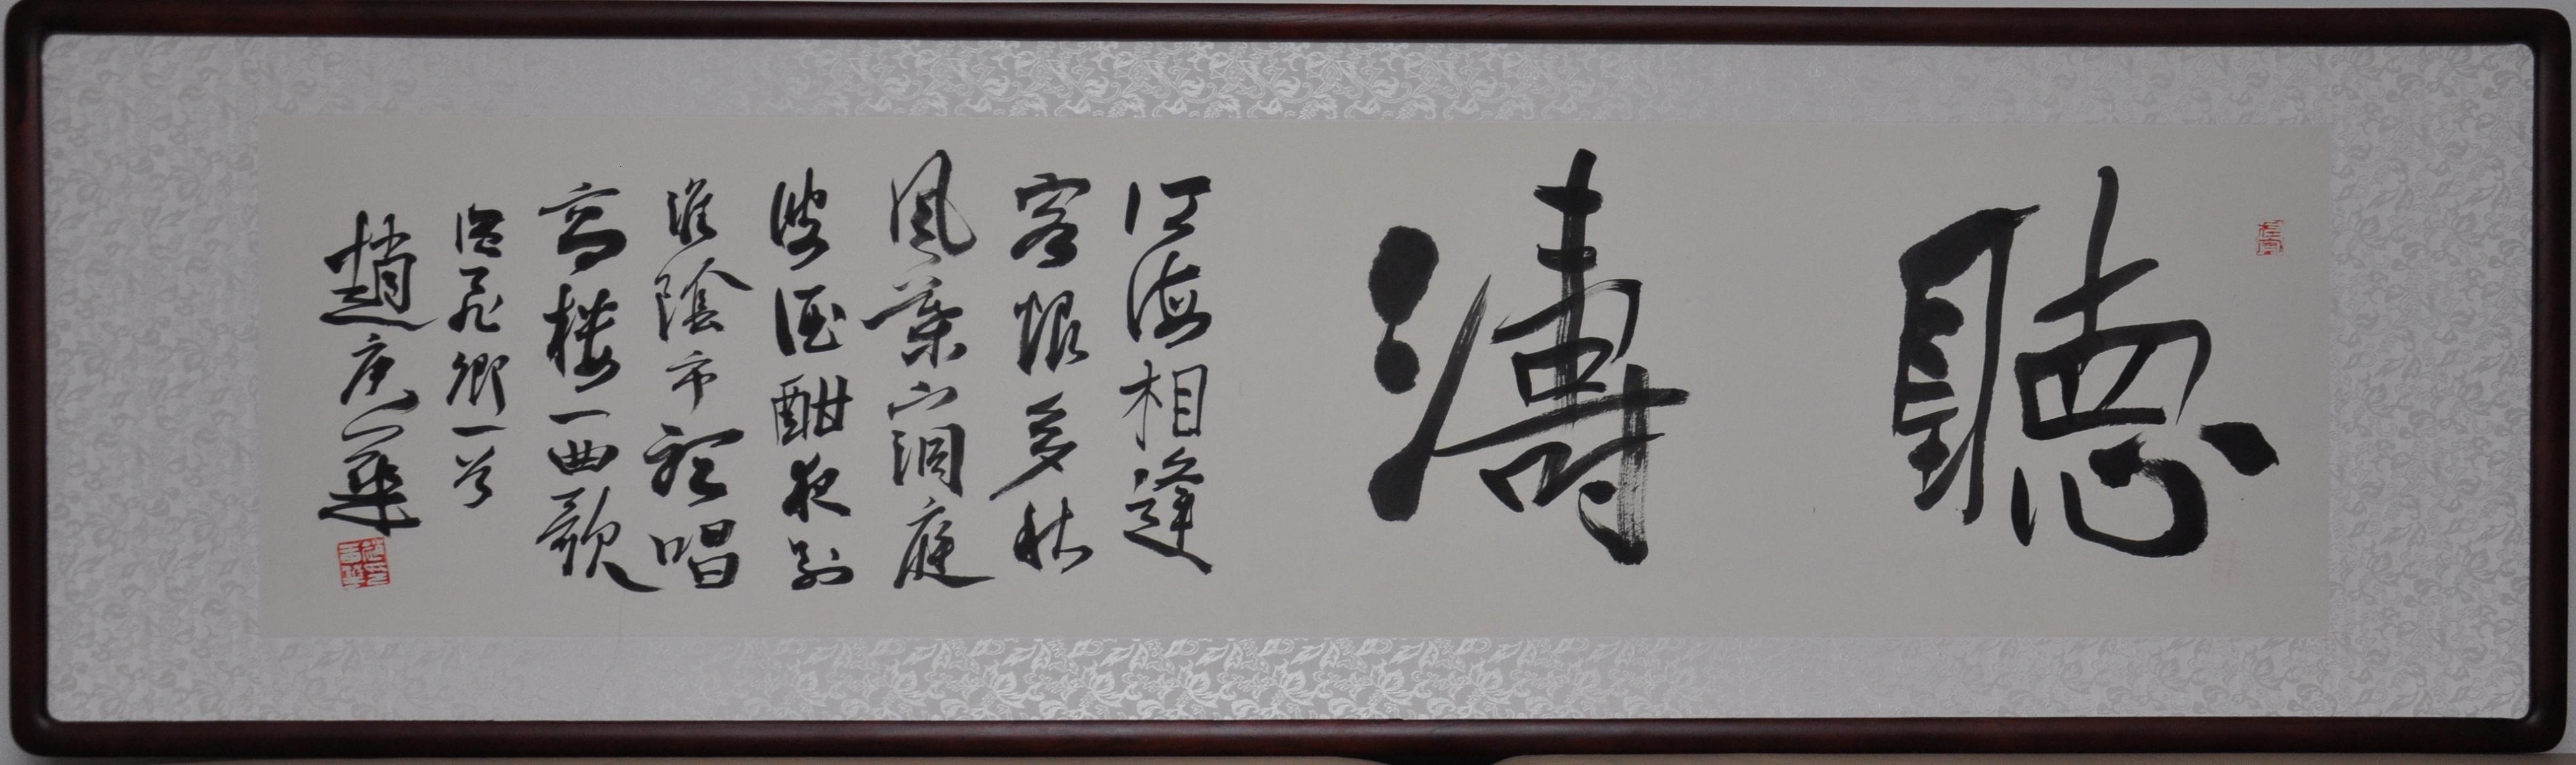 聽濤
江海相逢
客恨多秋
風葉下洞庭
波酒酣夜別
淮陰市唱
高樓一曲歌
温飛卿一首
趙華